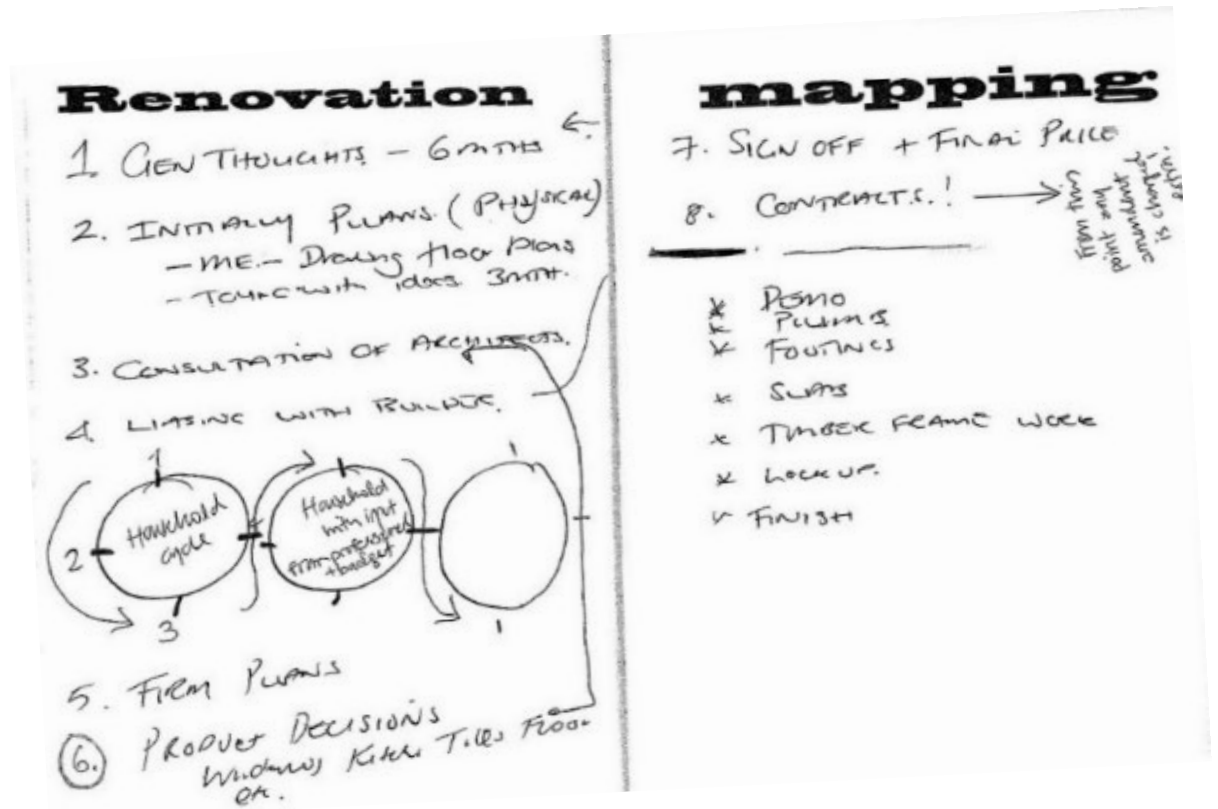 Renovation
1 GEN THOUGHTS - 6 MTHS
2. INITIALLY PLANS. (PHYSICAL)
- ME. - Drawing floor Plans
- with ideas 3MTH.
3. CONSULTATION OF ARCHITECTS.
4. LIASING WITH BUILDER.
1
2
3
4
Household
cycle
Household
with input
from professionals
+ budget
1
1
5. FIRM PLANS
6. PRODUCT DECISIONS
Windows Kitchen Tiles Floor
etc.
mapping
7. SIGN OFF + FINAL PRICE
8. CONTRACTS.!
From this
point any
amendment
is charged
extra!
* DEMO
* PLUMB
* FOOTINGS
* SLABS
* TIMBER FRAME WORK
* LOCK UP.
FINISH